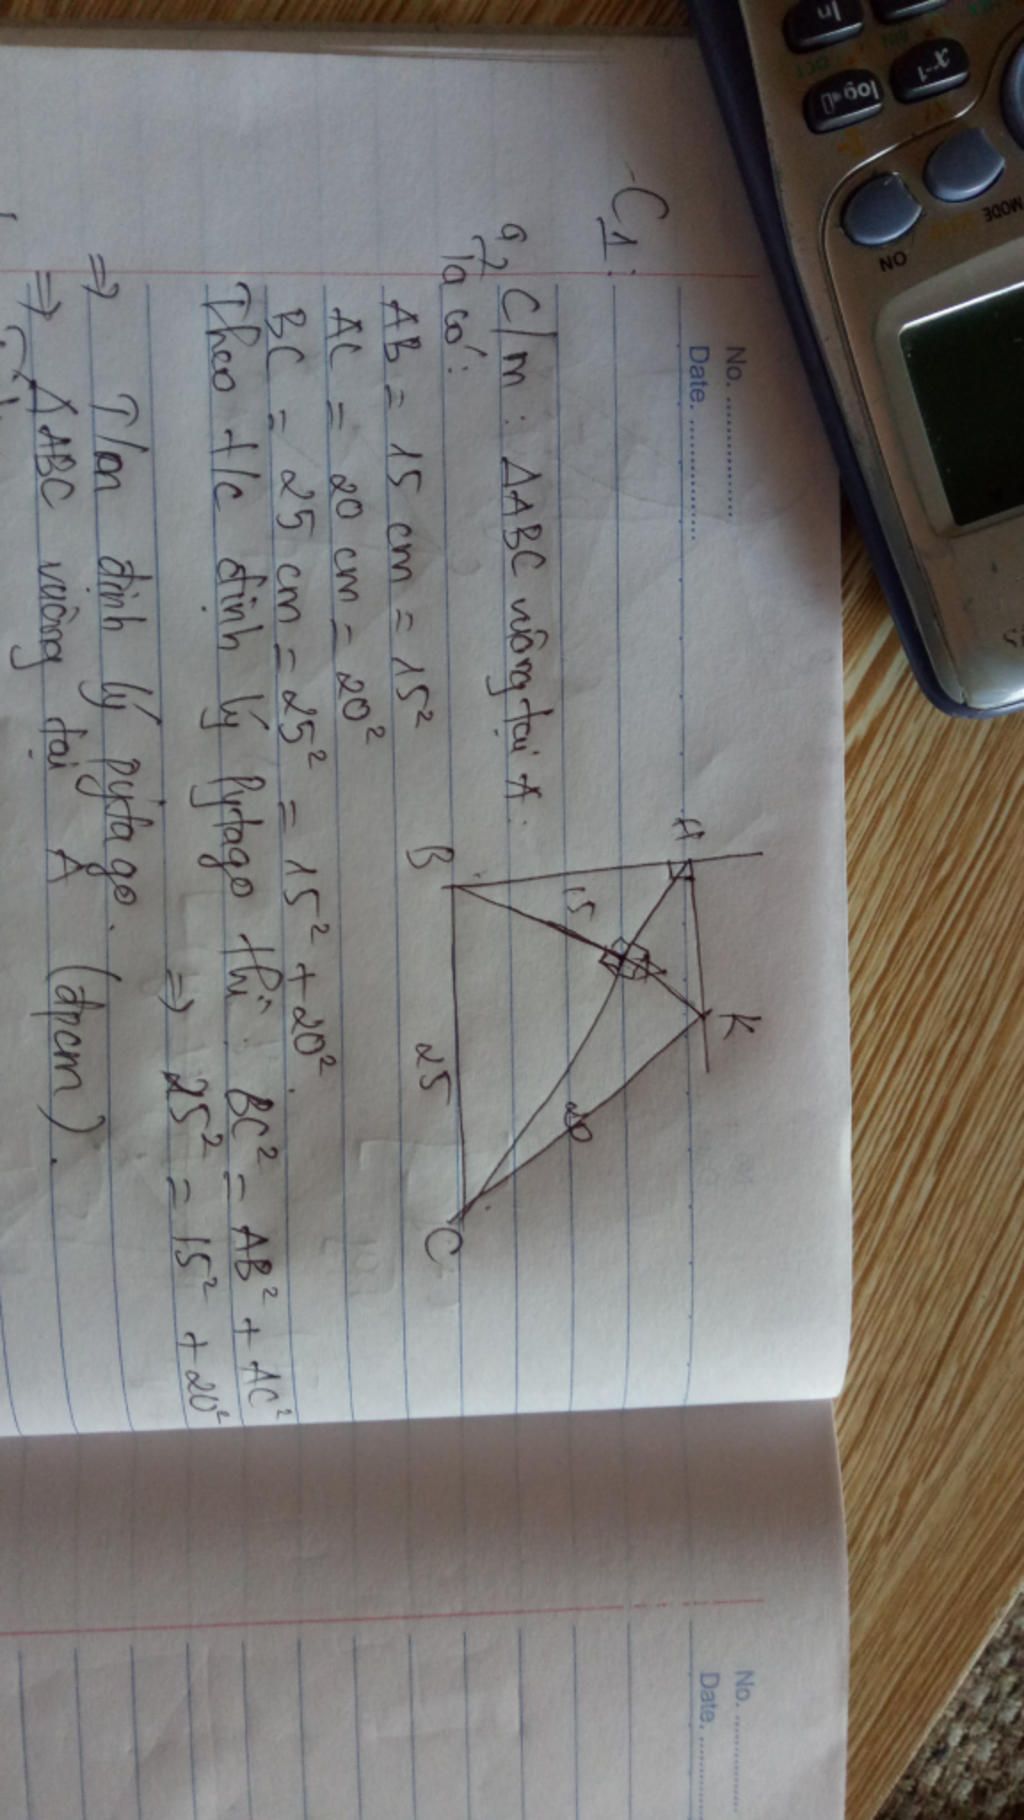 No. ...............
Date. ...............
C1:
a, C/m: ΔABC vuông tại A.
Ta có:
AB = 15 cm = 15²
AC = 20 cm = 20²
BC = 25 cm = 25² = 15² + 20².
Theo t/c định lý Pytago thì: BC² = AB² + AC²
⇒ 25² = 15² + 20²
⇒ T/m định lý pytago.
⇒ ΔABC vuông tại A (đpcm).
H
K
B
C
15
20
25
No. ...............
Date. ...............
ln
log
x⁻¹
MODE
ON